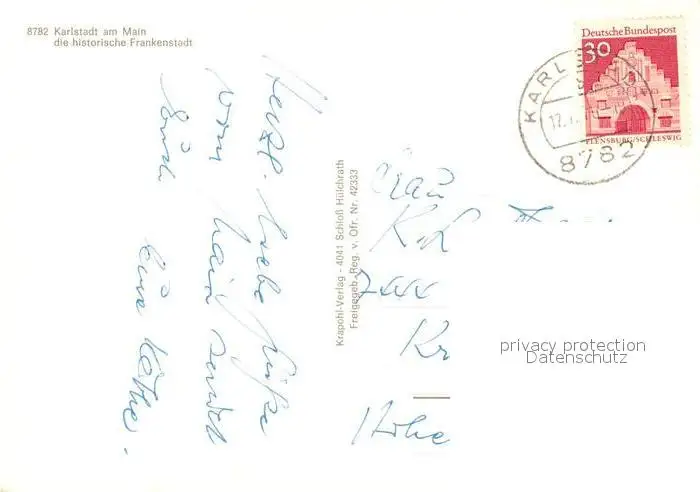 8782 Karlstadt am Main
die historische Frankenstadt
Deutsche Bundespost
30
FLENSBURG/SCHLESWIG
KARL
8782
Herzl. liebe Grüße
vom Main sendet
Euch
Eure Käthe.
Krapohl-Verlag - 4041 Schloß Hülchrath
Freigegeb.-Reg. v. Ofr. Nr. 42333
Frau
K
Kr
Höhe
privacy protection
Datenschutz